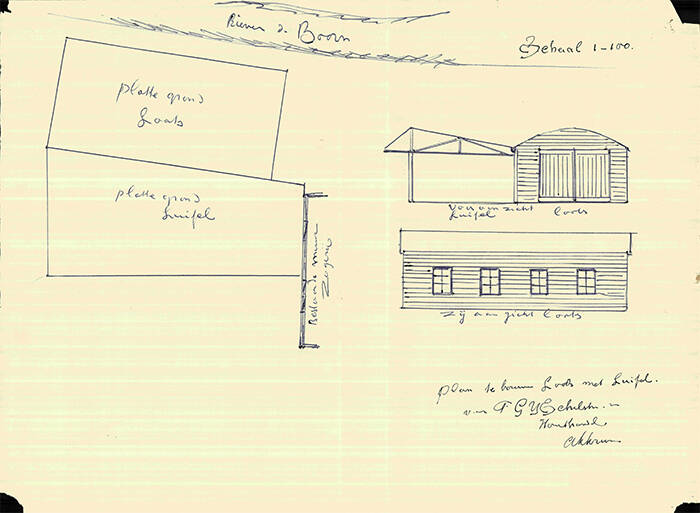 Rivier de Boorn
Schaal 1-100.
platte grond
Loots
platte grond
Luifel
Bestaande muur
Zagerij
Voor aan zicht
Luifel
loots
Zij aan zicht loots
plan te bouwen Loots met Luifel.
van
Houthandel
Akkrum